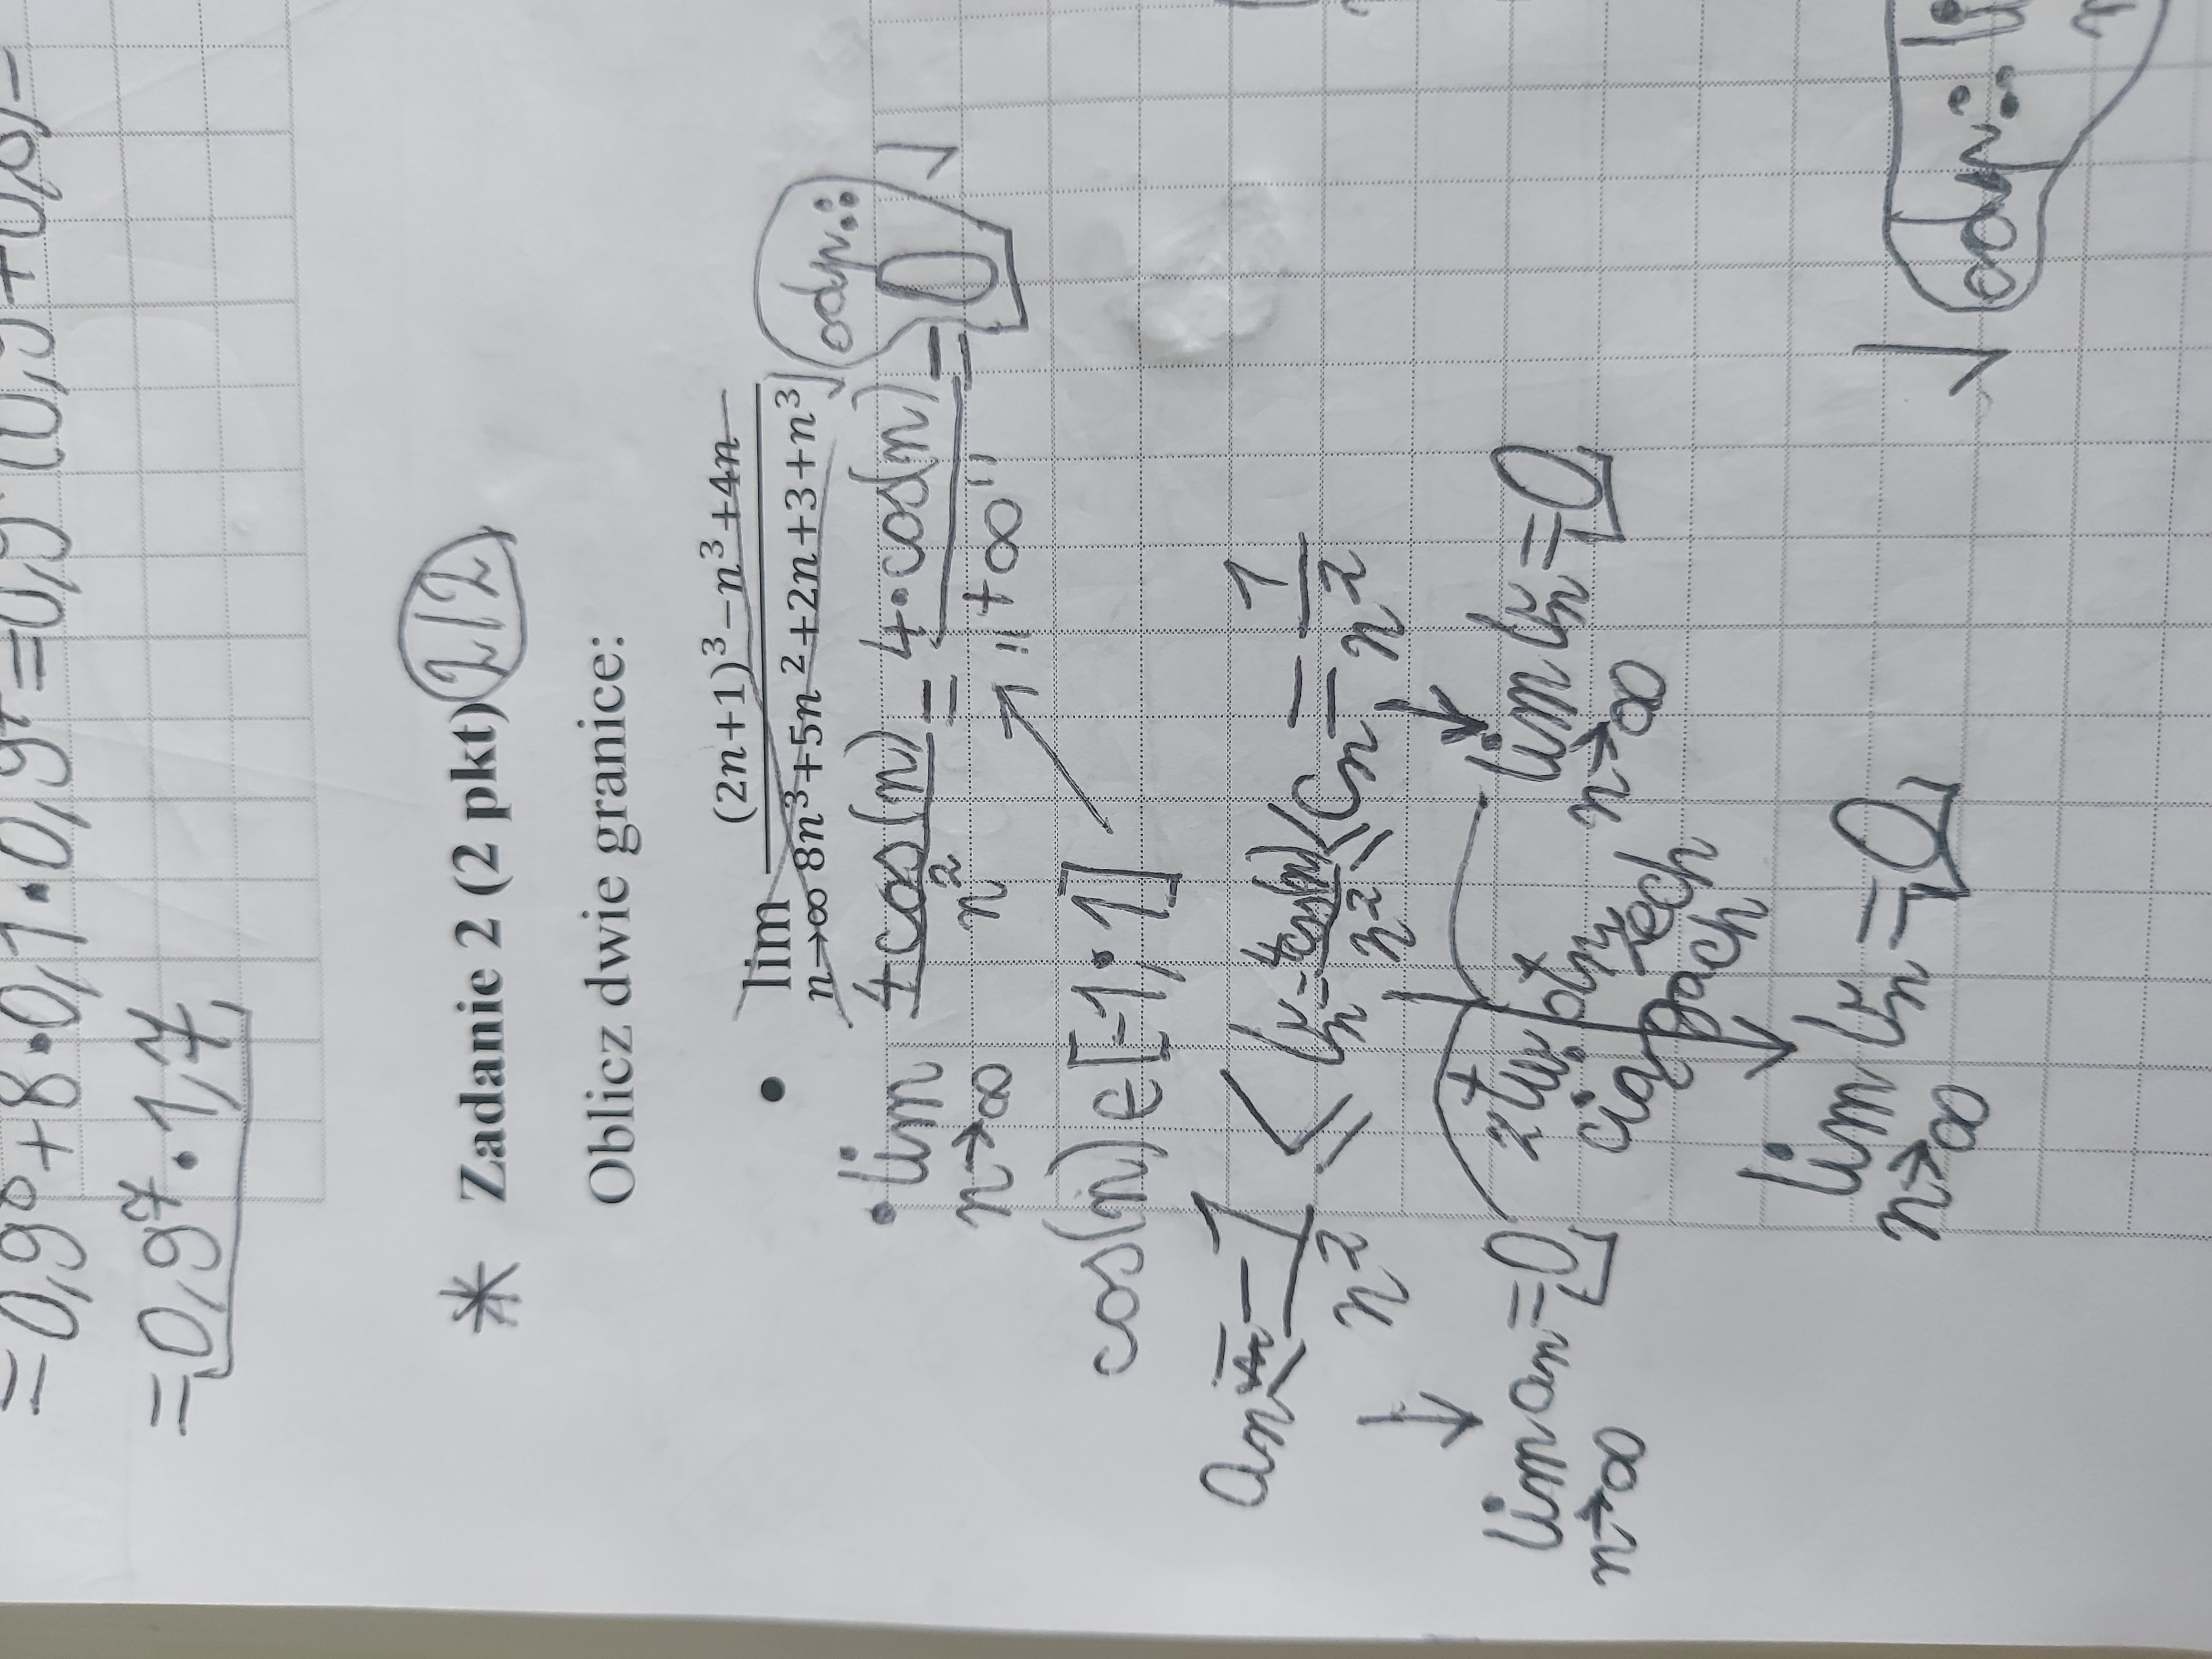 = 0,9⁸ + 8 · 0,1 · 0,9⁷ = 0,9
= 0,9⁷ · 1,7
* Zadanie 2 (2 pkt) 2/2
Oblicz dwie granice:
• lim n→∞ (2n+1)³−n³+4n / 8n³+5n²+2n+3+n³
• lim n→∞ 4cos(n) / n² = 4·cos(n) / "+∞" = 0
odp.:
cos(n) ∈ [-1;1]
an = -1/n² ≤ bn = 4cos(n)/n² ≤ cn = 1/n²
lim n→∞ an = 0
z tw. o trzech ciągach
lim n→∞ bn = 0
lim n→∞ bn = 0
odp.: